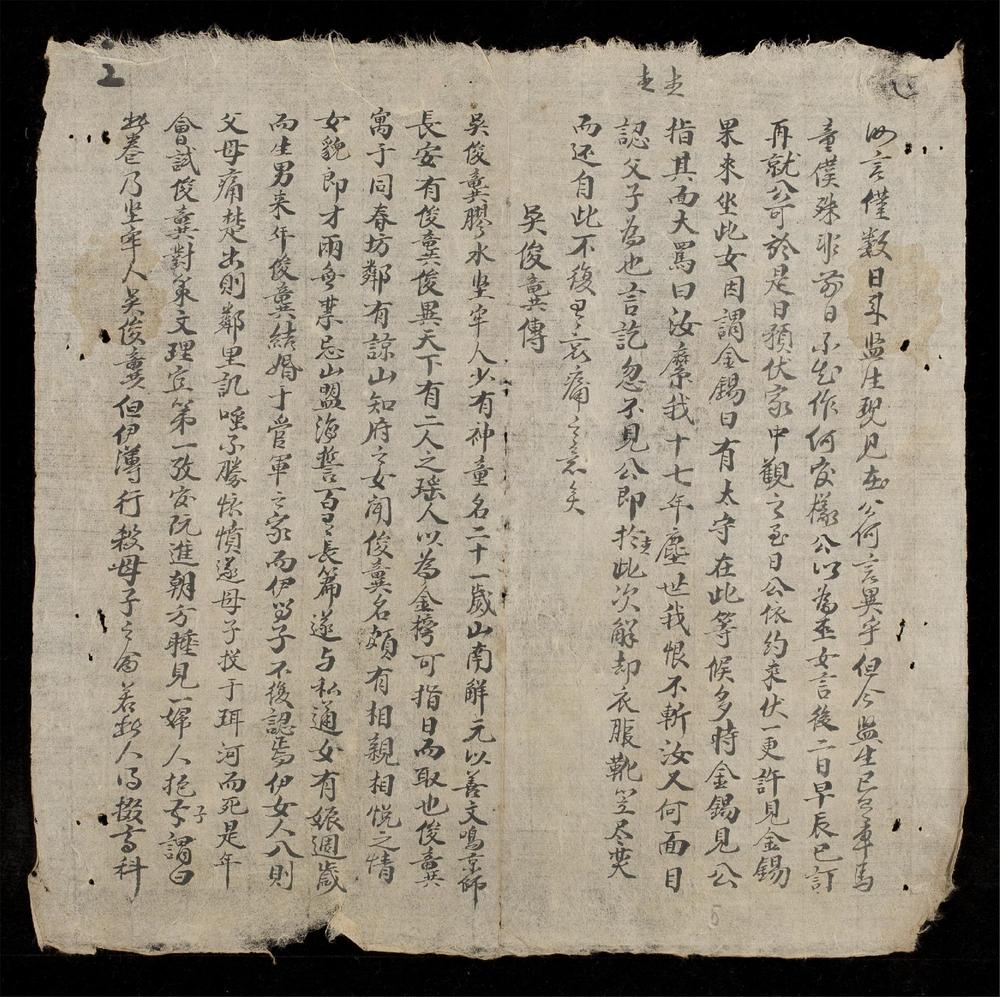 汝言僅数日耳監生現見在公何言異乎但今監生已有車馬
童僕殊非前日不知作何交樣公以為巫女言後二日早辰已訂
再就公可於是日預伏家中觀之至日公依約來伏一更許見金錫
果来坐此女因謂金錫曰有太守在此等候多時金錫見公
指其面大罵曰汝縻我十七年塵世我恨不斬汝又何面目
認父子為也言訖忽不見公即於此次解却衣服靴笠尽焚
而还自此不復有哀痛之意矣
吳俊龔傳
吳俊龔膠水坚牢人少有神童名二十一歲山南解元以善文鳴京師
長安有俊龔俊異天下有二人之瑶人以為金榜可指日而取也俊龔
寓于同春坊鄰有諒山知府之女聞俊龔名頗有相親相悅之情
女貌郎才兩無禁忌山盟海誓百有長篇遂与私通女有娠週歲
而生男来年俊龔結婚于管軍之家而伊母子不復認焉伊女人入則
父母痛楚出則鄰里訊唾不勝恨憤遂母子投于珥河而死是年
會試俊龔對策文理宜第一攷官阮進朝方睡見一婦人抱子謂曰
此卷乃坚牢人吳俊龔但伊薄行殺母子之命若此人得掇高科
2
5